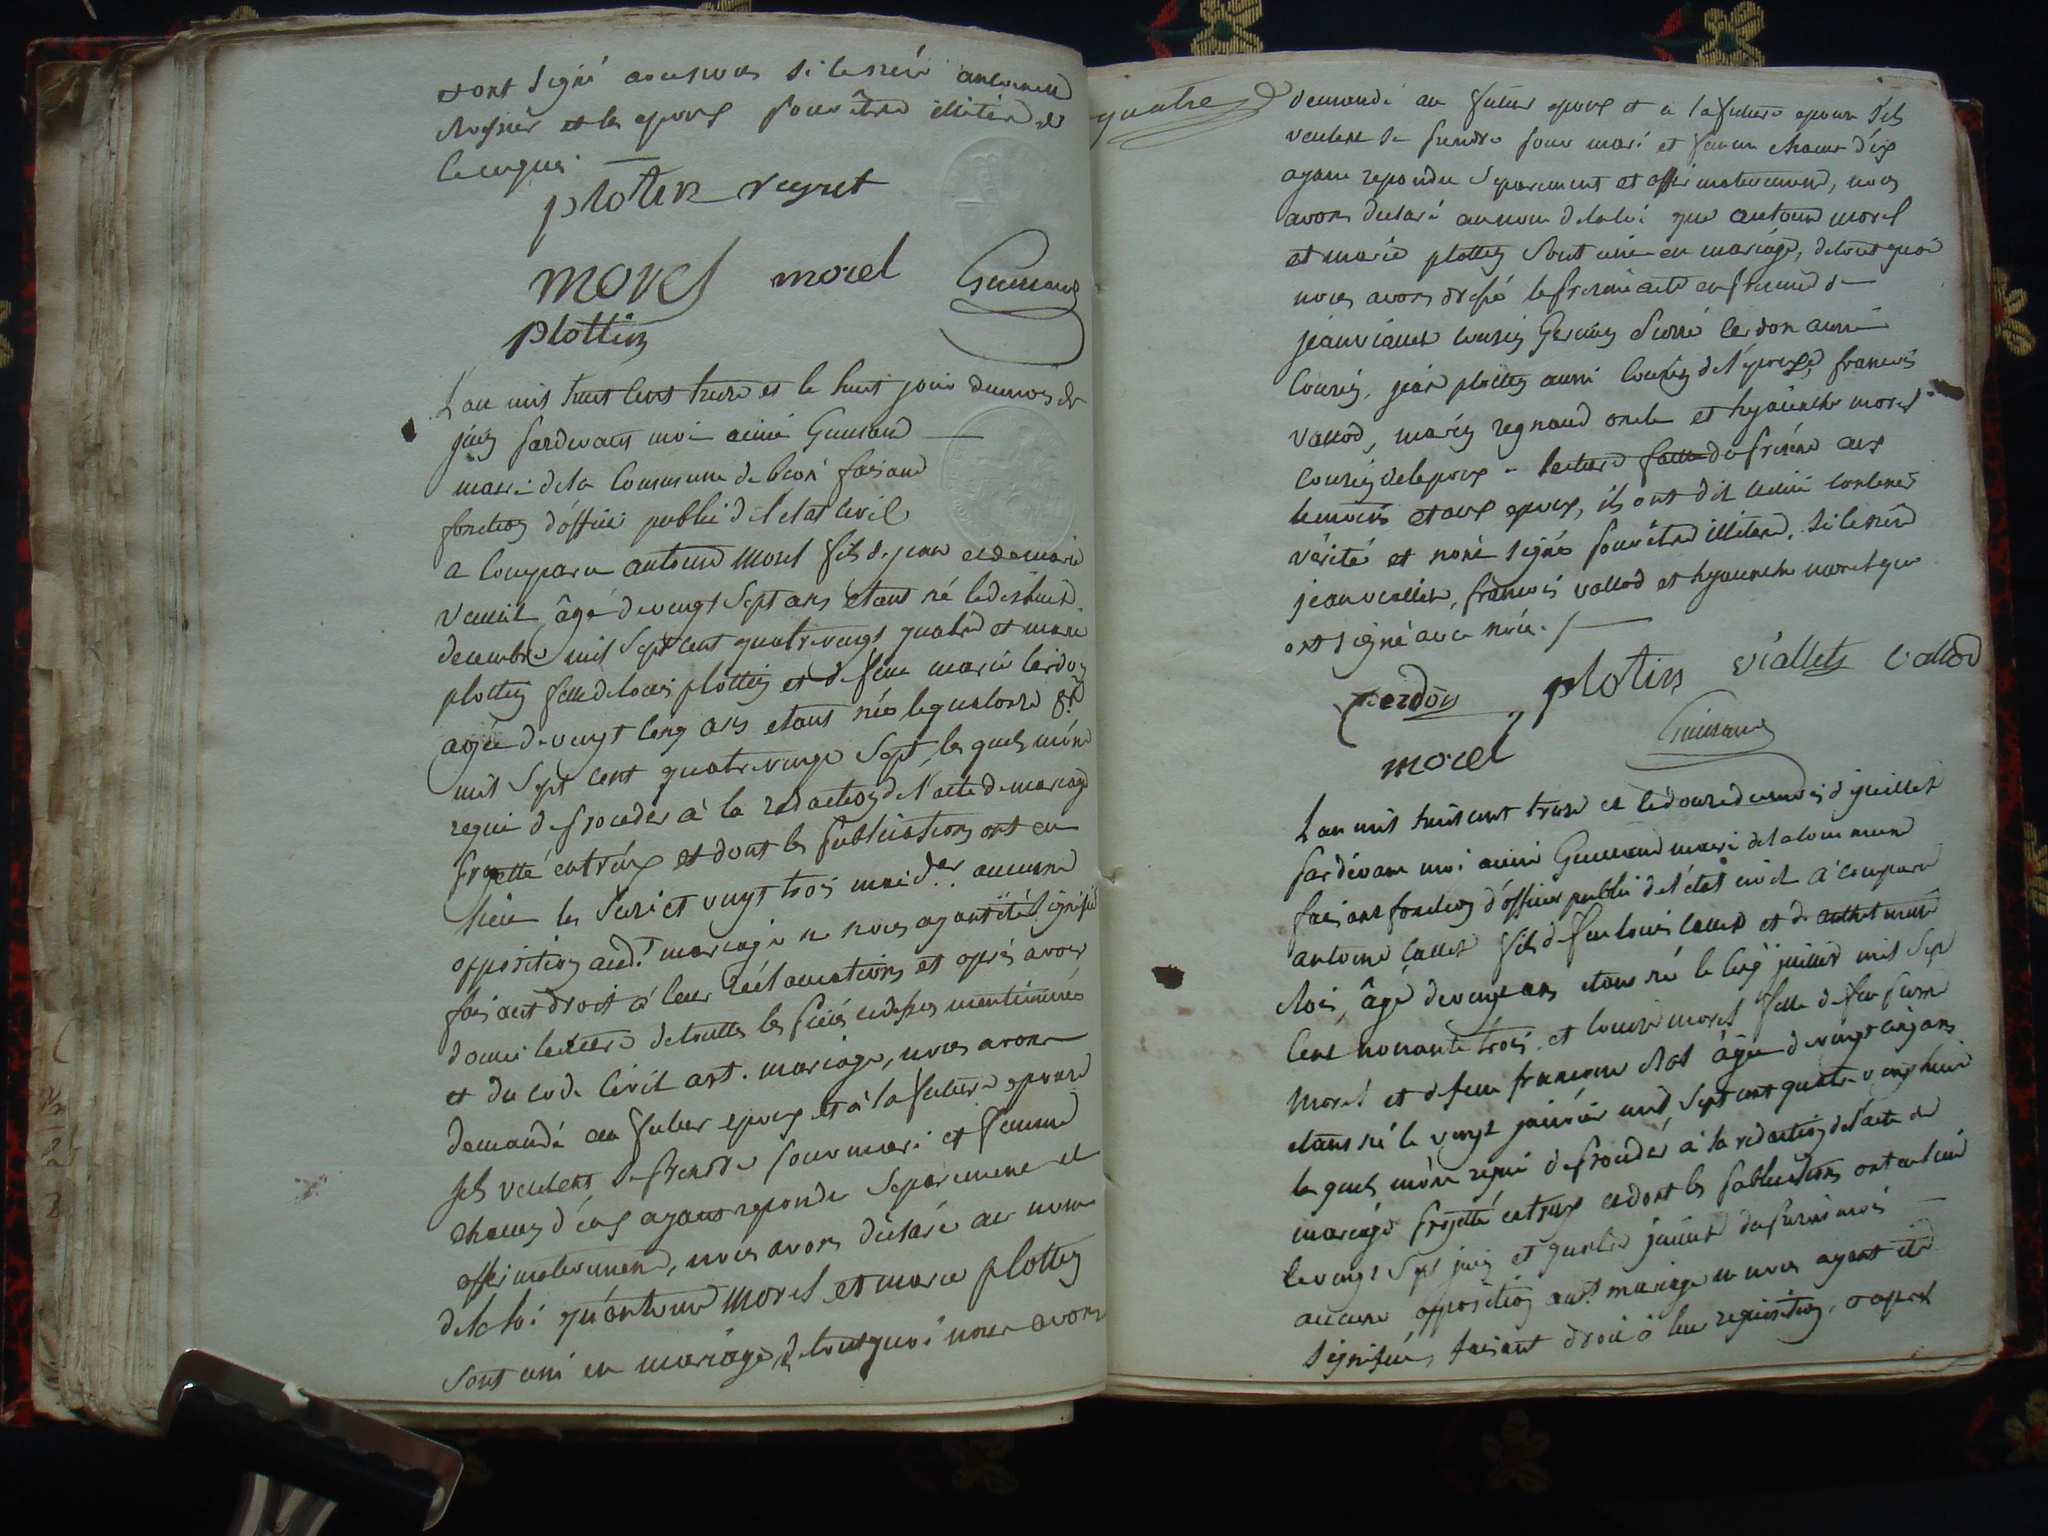 et ont signé avec nous si le n'est antoine
et les epoux pour être illiteré de
ce enquis
plotin veyret
morel morel Guinand
plottin
L'an mil huit cent treize et le huit jour du mois de
juin pardevant moi aimé Guinand
maire de la Commune de faisant
fonction d'officier public de l'etat Civil
a Comparu antoine morel fils de jean et de marie
agé de vingt Sept ans etant né le dixhuit
decembre mil Sept cent quatrevingt quatre et marie
plottin fille de louis plottin et de feue marie Cerdon
agée de vingt cinq ans etant née le quatorze 8bre
mil Sept cent quatrevingt Sept, les quels m'ont
requis de proceder à la redaction de l'acte de mariage
projetté entr'eux et dont les publications ont eu
lieu les Seize et vingt trois mai der. aucune
opposition aud.t mariage ne nous ayant été Signifié
faisant droit à leur réclamations et après avoir
donné lecture de toutes les pièces cidessus mentionnées
et du code Civil art. mariage, nous avons
demandé au futur epoux et à la future epouse
s'ils veulent se prendre pour mari et femme
chacun d'eux ayant repondu Separement et
affirmativement, nous avons déclaré au nom
de la loi qu'antoine morel et marie plottin
Sont uni en mariage, de tout quoi nous avons
quatre
demandé au futur epoux et à la future epouse s'ils
veulent se prendre pour mari et femme chacun d'eux
ayant repondu Separement et affirmativement, nous
avons declaré au nom de la loi que antoine morel
et marie plottin Sont uni en mariage, de tout quoi
nous avons dressé le present acte en presence de
jean viallet cousin Germain Pierre Cerdon aussi
Cousin, jean plottin aussi Cousin de l'epouse, françois
vallod, marin regnaud oncle et hyacinthe morel
Cousin de l'epoux - lecture faite du présent aux
temoins et aux epoux, ils ont dit icelui contenir
vérité et n'ont signés pour être illiteré, Si le n'est
jean viallet, françois vallod et hyacinthe morel qui
ont signé avec nous. /
Cerdon plotin viallet vallod
morel Guinand
L'an mil huit cent treize et le douze du mois de juillet
pardevant moi aimé Guinand maire de la commune
faisant fonction d'officier public de l'état civil a comparu
antoine Callet fils de feu louis Callet et de
clos, âgé de vingt ans etant né le cinq juillet mil Sept
Cent nonante trois et louise morel fille de feu Pierre
morel et de feue françoise clos âgée de vingt cinq ans
etant né le vingt janvier mil Sept cent quatre vingt huit
les quels m'ont requis de proceder à la redaction de l'acte de
mariage projetté entr'eux et dont les publications ont eu lieu
le vingt Sept juin et quatre juillet du present mois
aucune opposition aud.t mariage ne nous ayant été
signifiée, faisant droit à leur requisition, et après